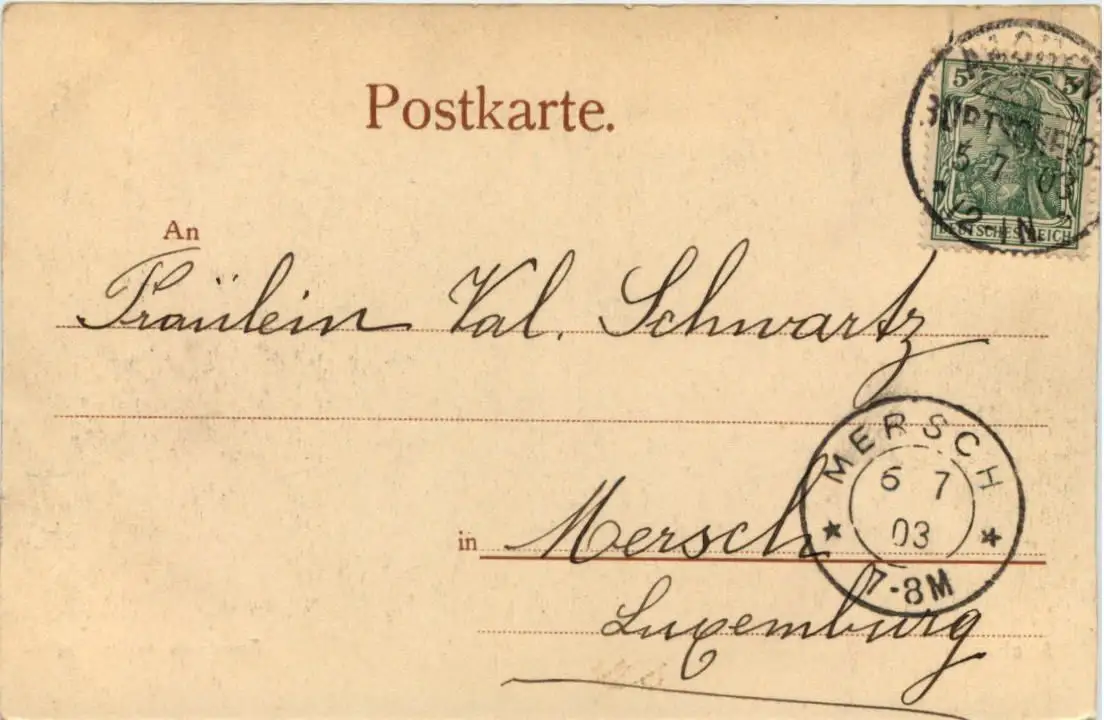 Postkarte.
5 5
BURTSCHEID
5 7 03
12 1N
DEUTSCHES REICH
An
Fräulein Val. Schwartz
MERSCH
6 7
03
7-8M
in Mersch
Luxemburg